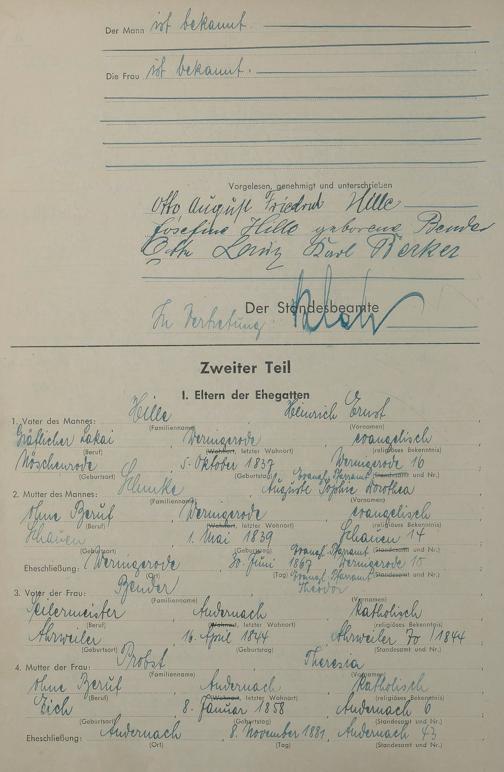 Der Mann ist bekannt.
Die Frau ist bekannt.
Vorgelesen, genehmigt und unterschrieben
Otto August Friedrich Hille
Josefine Hille geborene Bender
Otto Karl Berker
Der Standesbeamte
In Vertretung
Zweiter Teil
I. Eltern der Ehegatten
Hille Heinrich Ernst
1. Vater des Mannes: (Familienname) (Vornamen)
Gräflicher Lakai Wernigerode evangelisch
(Beruf) (Wohnort, letzter Wohnort) (religiöses Bekenntnis)
Nöschenrode 5. Oktober 1837 Wernigerode 16
Evangl. Pfarramt
(Geburtsort) (Geburtstag) (Standesamt und Nr.)
Auguste Sophie Dorothea
2. Mutter des Mannes: (Familienname) (Vornamen)
Ohne Beruf Wernigerode evangelisch
(Beruf) (Wohnort, letzter Wohnort) (religiöses Bekenntnis)
Schauen 1. Mai 1839 Schauen 14
Evangl. Pfarramt
(Geburtsort) (Geburtstag) (Standesamt und Nr.)
Eheschließung: Wernigerode 30. Juni 1867 Wernigerode 15
Evangl. Pfarramt
(Ort) (Tag) (Standesamt und Nr.)
Bender Theodor
3. Vater der Frau: (Familienname) (Vornamen)
Seilermeister Andernach Katholisch
(Beruf) (Wohnort, letzter Wohnort) (religiöses Bekenntnis)
Ahrweiler 16. April 1844 Ahrweiler 70/1844
(Geburtsort) (Geburtstag) (Standesamt und Nr.)
Probst Theresia
4. Mutter der Frau: (Familienname) (Vornamen)
Ohne Beruf Andernach Katholisch
(Beruf) (Wohnort, letzter Wohnort) (religiöses Bekenntnis)
Eich 8. Januar 1858 Andernach 6
(Geburtsort) (Geburtstag) (Standesamt und Nr.)
Eheschließung: Andernach 8. November 1881 Andernach 43
(Ort) (Tag) (Standesamt und Nr.)